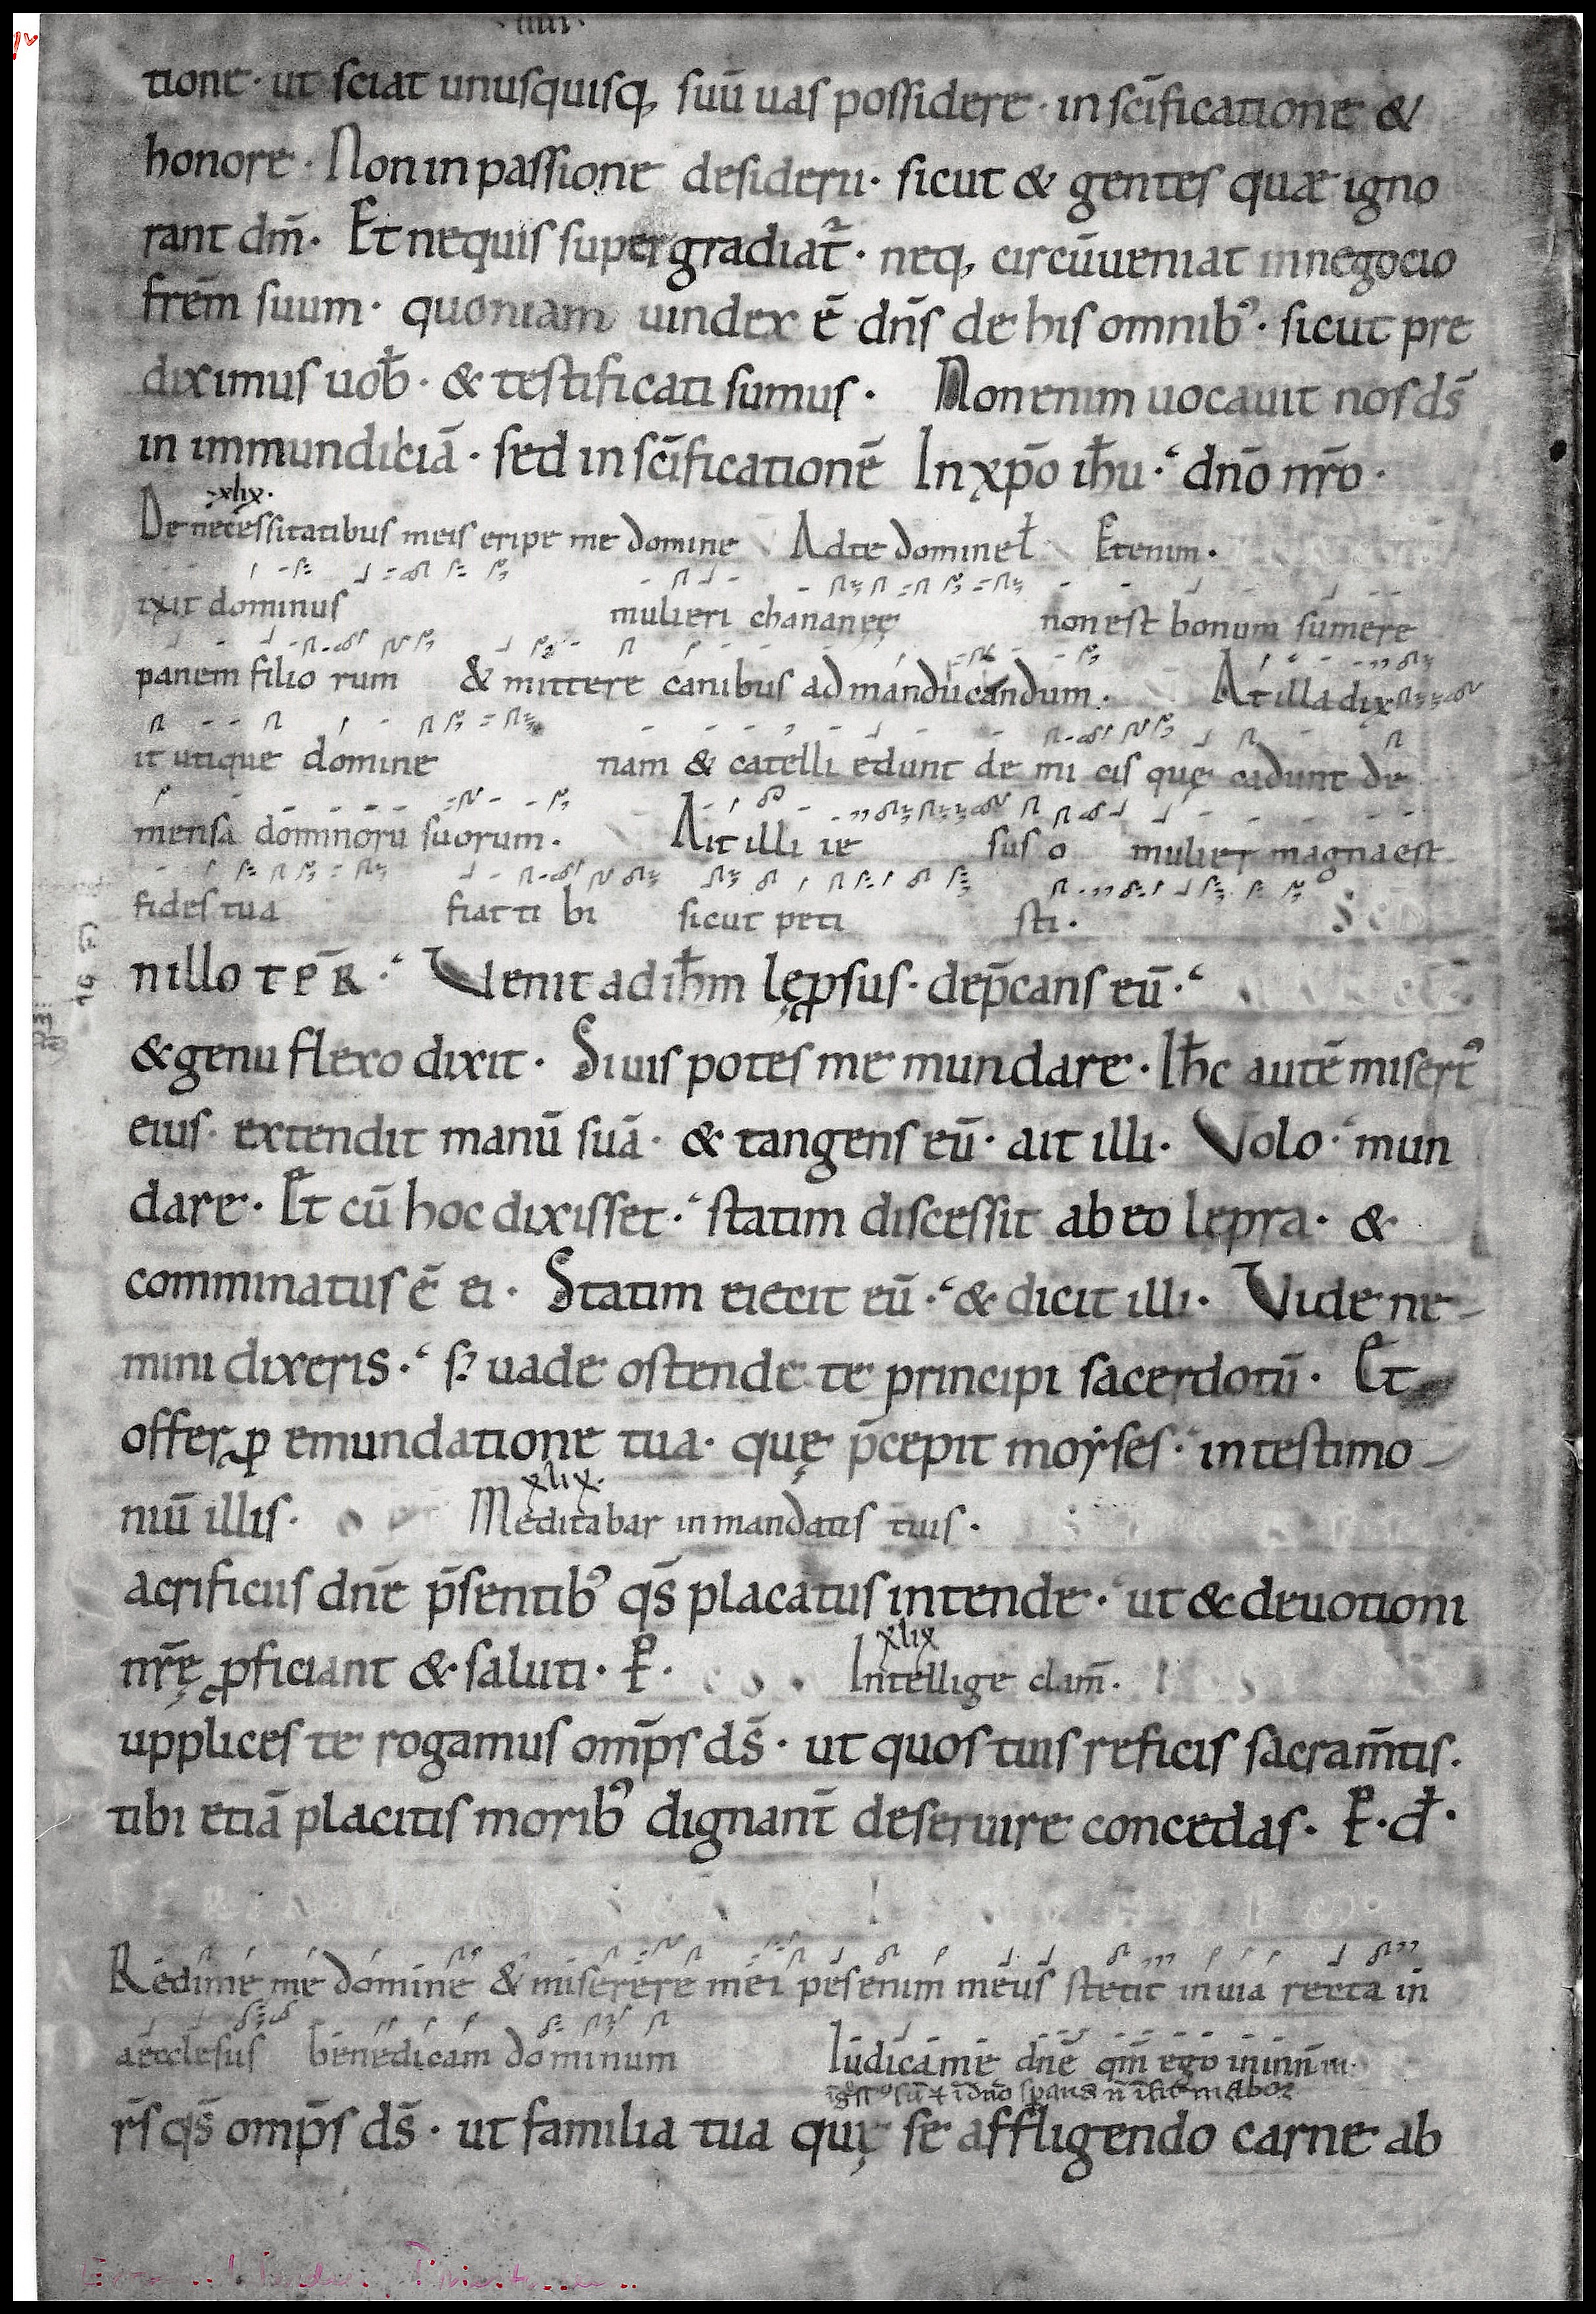 ·iiii·
tione · ut sciat unusquisq, suū uas possidere · in scīficatione &
honore · Non in passione desiderii · sicut & gentes quæ igno
rant dm̄ · Et nequis supergradiat᷑ · neq, circūueniat in negocio
frēm suum · quoniam uindex ē dn̄s de his omnib᾿ · sicut pre
diximus uob̄ · & testificati sumus · Non enim uocauit nos ds̄
in immundiciā · sed in scīficationē In xp̄o ih̄u · dn̄o nr̄o ·
xlix ·
De necessitatibus meis eripe me domine Ad te domine ł Etenim ·
ixit dominus mulieri chananęę non est bonum sumere
panem filio rum & mittere canibus ad manducandum · At illa dix
it utique domine nam & catelli edunt de mi cis quę cadunt de
mensa dominorū suorum · Ait illi ie sus o mulier magna est
fides tua fiat ti bi sicut peti sti ·
n illo t p̄ r · Venit ad ih̄m lęꝓsus · dep̄cans eū ·
& genu flexo dixit · Si uis potes me mundare · Ih̄c autē misert᾿
eius · extendit manū suā · & tangens eū · ait illi · Volo · mun
dare · Et cū hoc dixisset · statim discessit ab eo lępra · &
comminatus ē ei · Statim eiecit eū · & dicit illi · Vide ne
mini dixeris · s; uade ostende te principi sacerdotū · Et
offer ꝓ emundatione tua · quę p̄cepit moyses · in testimo
niū illis · Meditabar in mandatis tuis ·
xlix ·
acrificiis dn̄e p̄sentib᾿ qs̄ placatus intende · ut & deuotioni
nr̄ę ꝓficiant & saluti · P · Intellige clam̄ ·
xlix
upplices te rogamus omp̄s ds̄ · ut quos tuis reficis sacram̄tis ·
tibi etiā placitis morib᾿ dignant̄ deseruire concedas · P · d̄ ·
Redime me domine & miserere mei pes enim meus stetit in uia recta in
aecclesiis benedicam dominum Iudica me dn̄e qm̄ ego in inn̄
rs̄ qs̄ omp̄s ds̄ · ut familia tua quę se affligendo carne ab